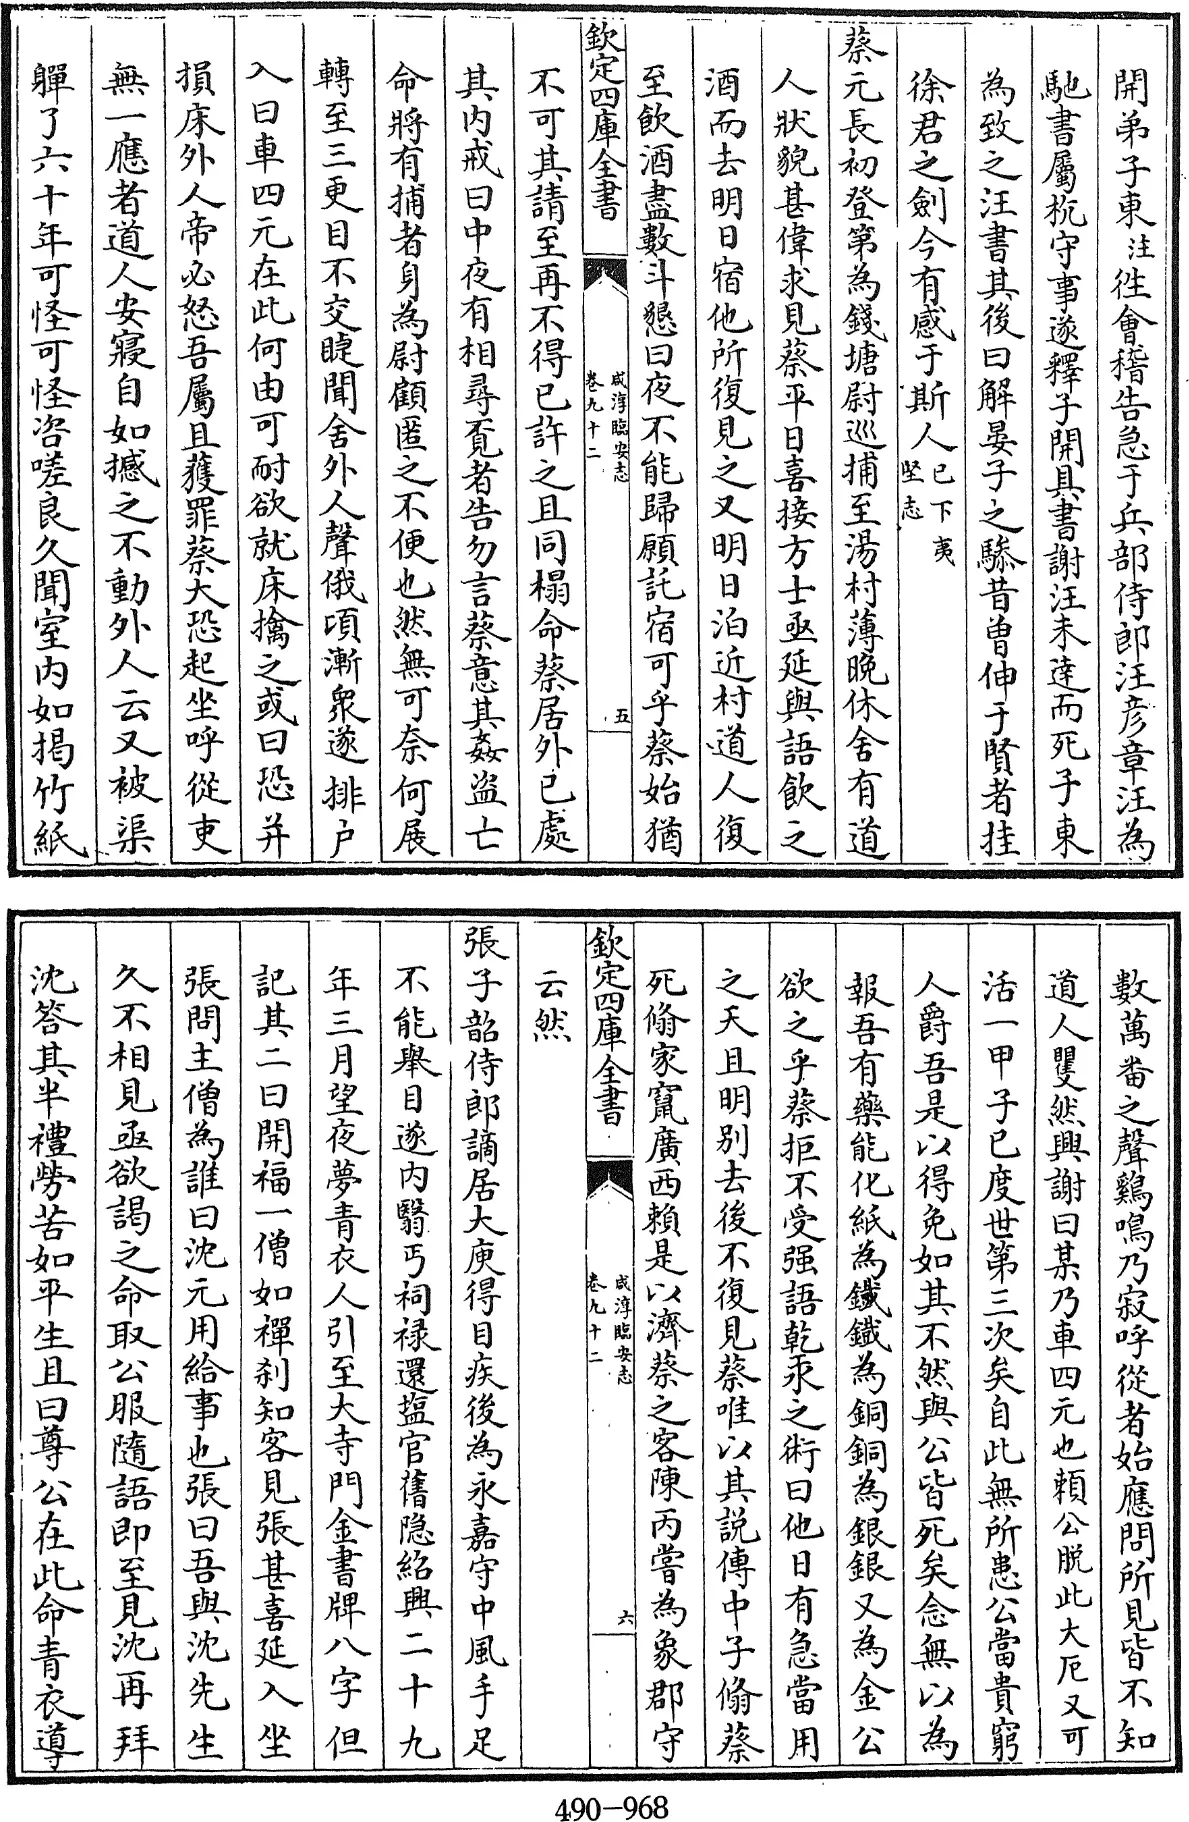 開弟子東注徃會稽告急于兵部侍郎汪彦章汪為
馳書屬杭守事遂釋子開具書謝汪未達而死子東
為致之汪書其後曰解晏子之驂昔曾伸于賢者挂
徐君之劍今有感于斯人已下夷堅志
蔡元長初登第為錢塘尉巡捕至湯村薄晚休舍有道
人狀貌甚偉求見蔡平日喜接方士亟延與語飲之
酒而去明日宿他所復見之又明日泊近村道人復
至飲酒盡數斗懇曰夜不能歸願託宿可乎蔡始猶
欽定四庫全書
咸淳臨安志
卷九十二
五
不可其請至再不得已許之且同榻命蔡居外已處
其内戒曰中夜有相尋覔者告勿言蔡意其姦盜亡
命將有捕者身為尉顧匿之不便也然無可奈何展
轉至三更目不交睫聞舍外人聲俄頃漸衆遂排户
入曰車四元在此何由可耐欲就床擒之或曰恐并
損床外人帝必怒吾屬且獲罪蔡大恐起坐呼從吏
無一應者道人安寢自如撼之不動外人云又被渠
軃了六十年可怪可怪咨嗟良久聞室内如揭竹紙
數萬畨之聲鷄鳴乃寂呼從者始應問所見皆不知
道人矍然興謝曰某乃車四元也頼公脱此大厄又可
活一甲子已度世第三次矣自此無所患公當貴窮
人爵吾是以得免如其不然與公皆死矣念無以為
報吾有藥能化紙為鐵鐵為銅銅為銀銀又為金公
欲之乎蔡拒不受强語乾汞之術曰他日有急當用
之天且明别去後不復見蔡唯以其説傳中子翛蔡
死翛家竄廣西頼是以濟蔡之客陳丙嘗為象郡守
欽定四庫全書
咸淳臨安志
卷九十二
六
云然
張子韶侍郎謫居大庾得目疾後為永嘉守中風手足
不能舉目遂内翳丐祠禄還塩官舊隐紹興二十九
年三月望夜夢青衣人引至大寺門金書牌八字但
記其二曰開福一僧如禪刹知客見張甚喜延入坐
張問主僧為誰曰沈元用給事也張曰吾與沈先生
久不相見亟欲謁之命取公服隨語即至見沈再拜
沈答其半禮勞苦如平生且曰尊公在此命青衣導
490-968